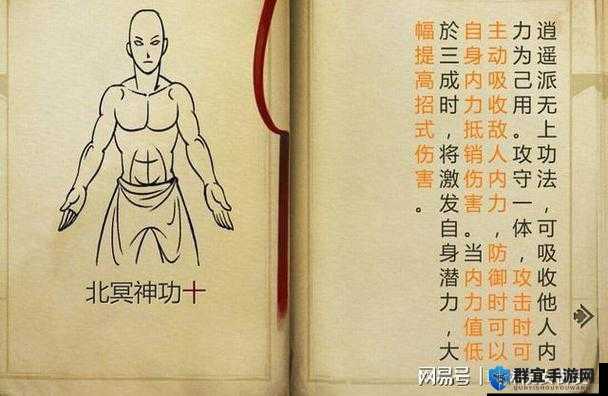 逍遥派无上功法，可吸收他人内
力为己用。攻守一体，攻击时可
主动吸收敌人内力，防御时可以
自身内力抵销伤害。当内力值低
於三成时，将激发自身潜力，大
幅提高招式伤害。
北冥神功十
网易号
群宜手游网